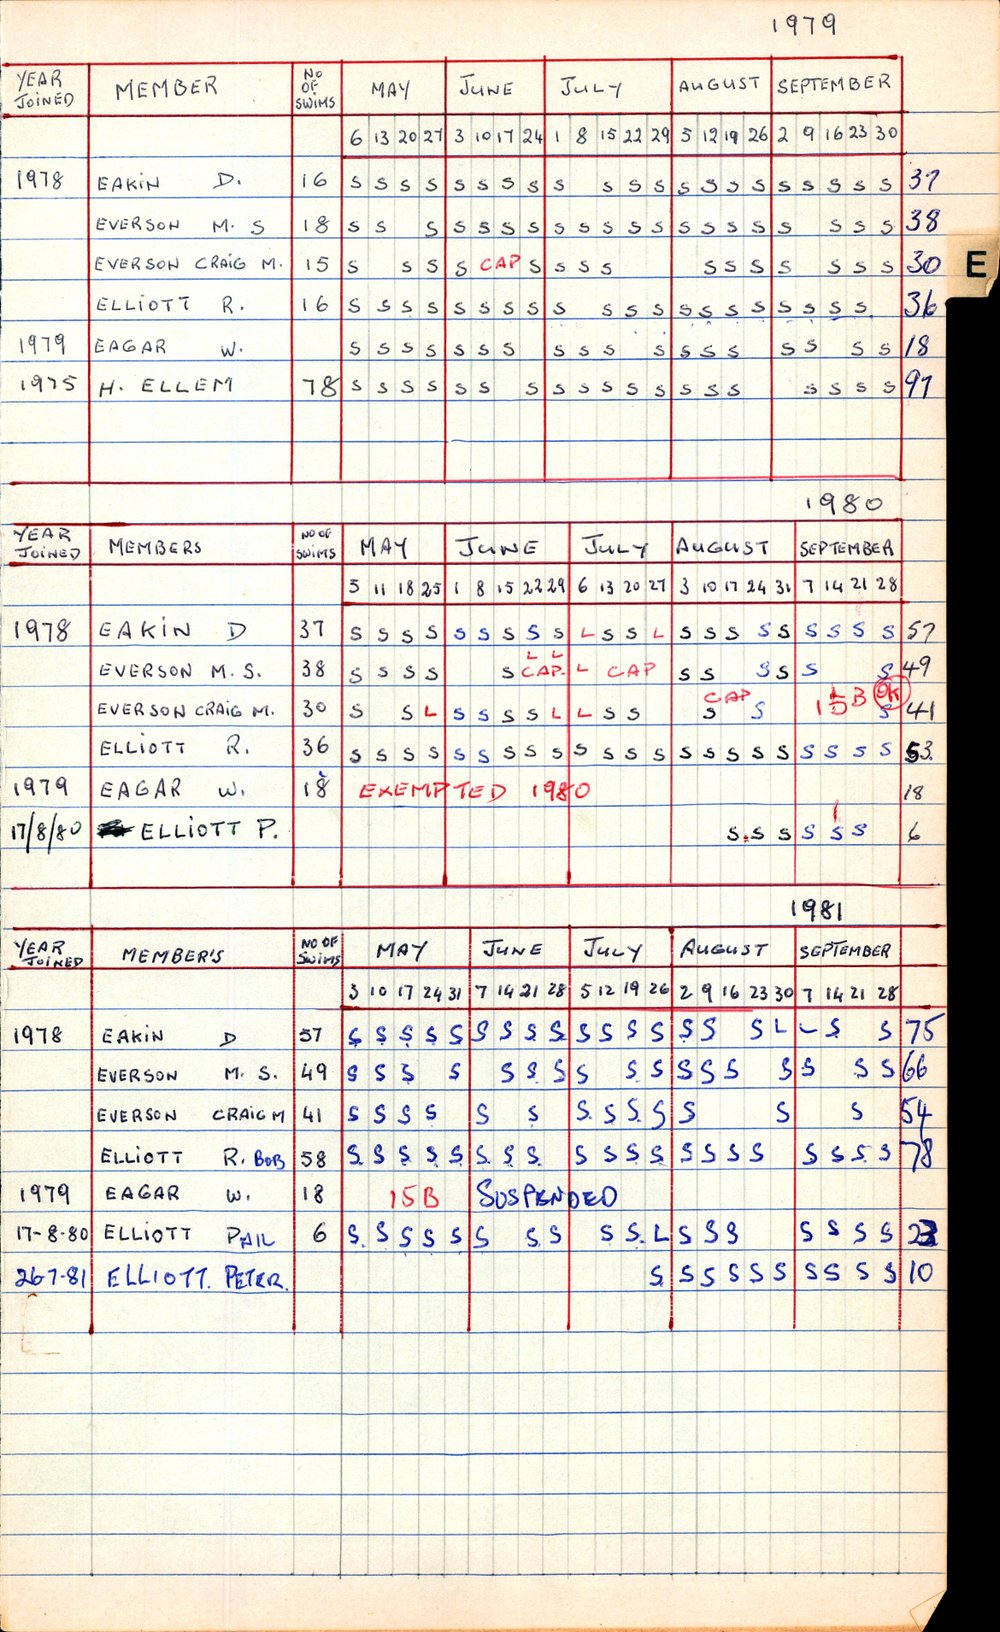 1979
YEAR JOINED MEMBER NO OF SWIMS MAY JUNE JULY AUGUST SEPTEMBER
6 13 20 27 3 10 17 24 1 8 15 22 29 5 12 19 26 2 9 16 23 30
1978 EAKIN D. 16 S S S S S S S S S S S S S S S S S S S S S 37
EVERSON M. S 18 S S S S S S S S S S S S S S S S S S S S 38
EVERSON CRAIG M. 15 S S S S CAP S S S S S S S S S S S S 30
ELLIOTT R. 16 S S S S S S S S S S S S S S S S S S S S 36
1979 EAGAR W. S S S S S S S S S S S S S S S S S S S 18
1975 H. ELLEM 78 S S S S S S S S S S S S S S S S S S S 97
E
1980
YEAR JOINED MEMBERS NO OF SWIMS MAY JUNE JULY AUGUST SEPTEMBER
5 11 18 25 1 8 15 22 29 6 13 20 27 3 10 17 24 31 7 14 21 28
1978 EAKIN D 37 S S S S S S S S S L S S L S S S S S S S S S 57
L L
EVERSON M. S. 38 S S S S S CAP. L CAP S S S S S S 49
EVERSON CRAIG M. 30 S S L S S S S L L S S CAP S S 15B L OK S 41
ELLIOTT R. 36 S S S S S S S S S S S S S S S S S S S S S S 53.
1979 EAGAR W. 18 EXEMPTED 1980 18
17/8/80 ELLIOTT P. S S S S S S 6
1981
YEAR JOINED MEMBER'S NO OF SWIMS MAY JUNE JULY AUGUST SEPTEMBER
3 10 17 24 31 7 14 21 28 5 12 19 26 2 9 16 23 30 7 14 21 28
1978 EAKIN D 57 S S S S S S S S S S S S S S S S L L S S 75
EVERSON M. S. 49 S S S S S S S S S S S S S S S S S 66
EVERSON CRAIG M 41 S S S S S S S S S S S S S 54
ELLIOTT R. BOB 58 S S S S S S S S S S S S S S S S S S S S 78
1979 EAGAR W. 18 15B SUSPENDED
17-8-80 ELLIOTT PHIL 6 S S S S S S S S S S L S S S S S S S 23
26-7-81 ELLIOTT PETER. S S S S S S S S S S 10